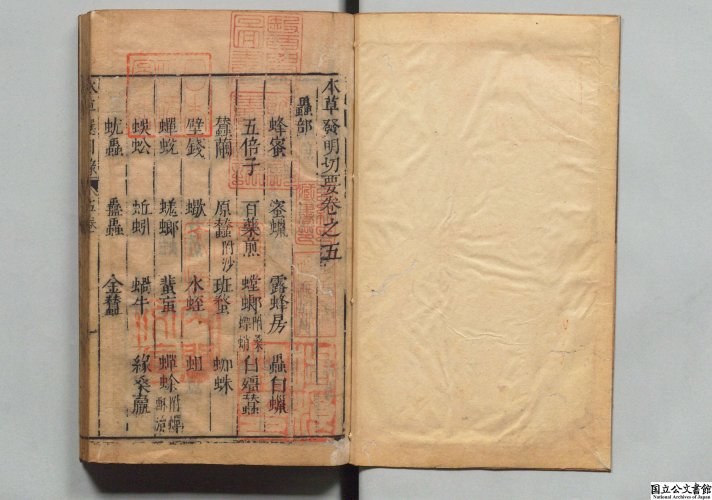 本草發明切要卷之五
蟲部
蜂蜜 蜜蠟 露蜂房 蟲白蠟
五倍子 百藥煎 螳螂附桑螵蛸 白殭蠶
蠶繭 原蠶附沙 斑蝥 蜘蛛
壁錢 蠍 水蛭 蛆
蟬蛻 蜣螂 蜚䖟 蟾蜍附蟾酥
蜈蚣 蚯蚓 蝸牛 緣桑蠃
蚘蟲 蠱蟲 金蠶
五卷
国立公文書館
National Archives of Japan